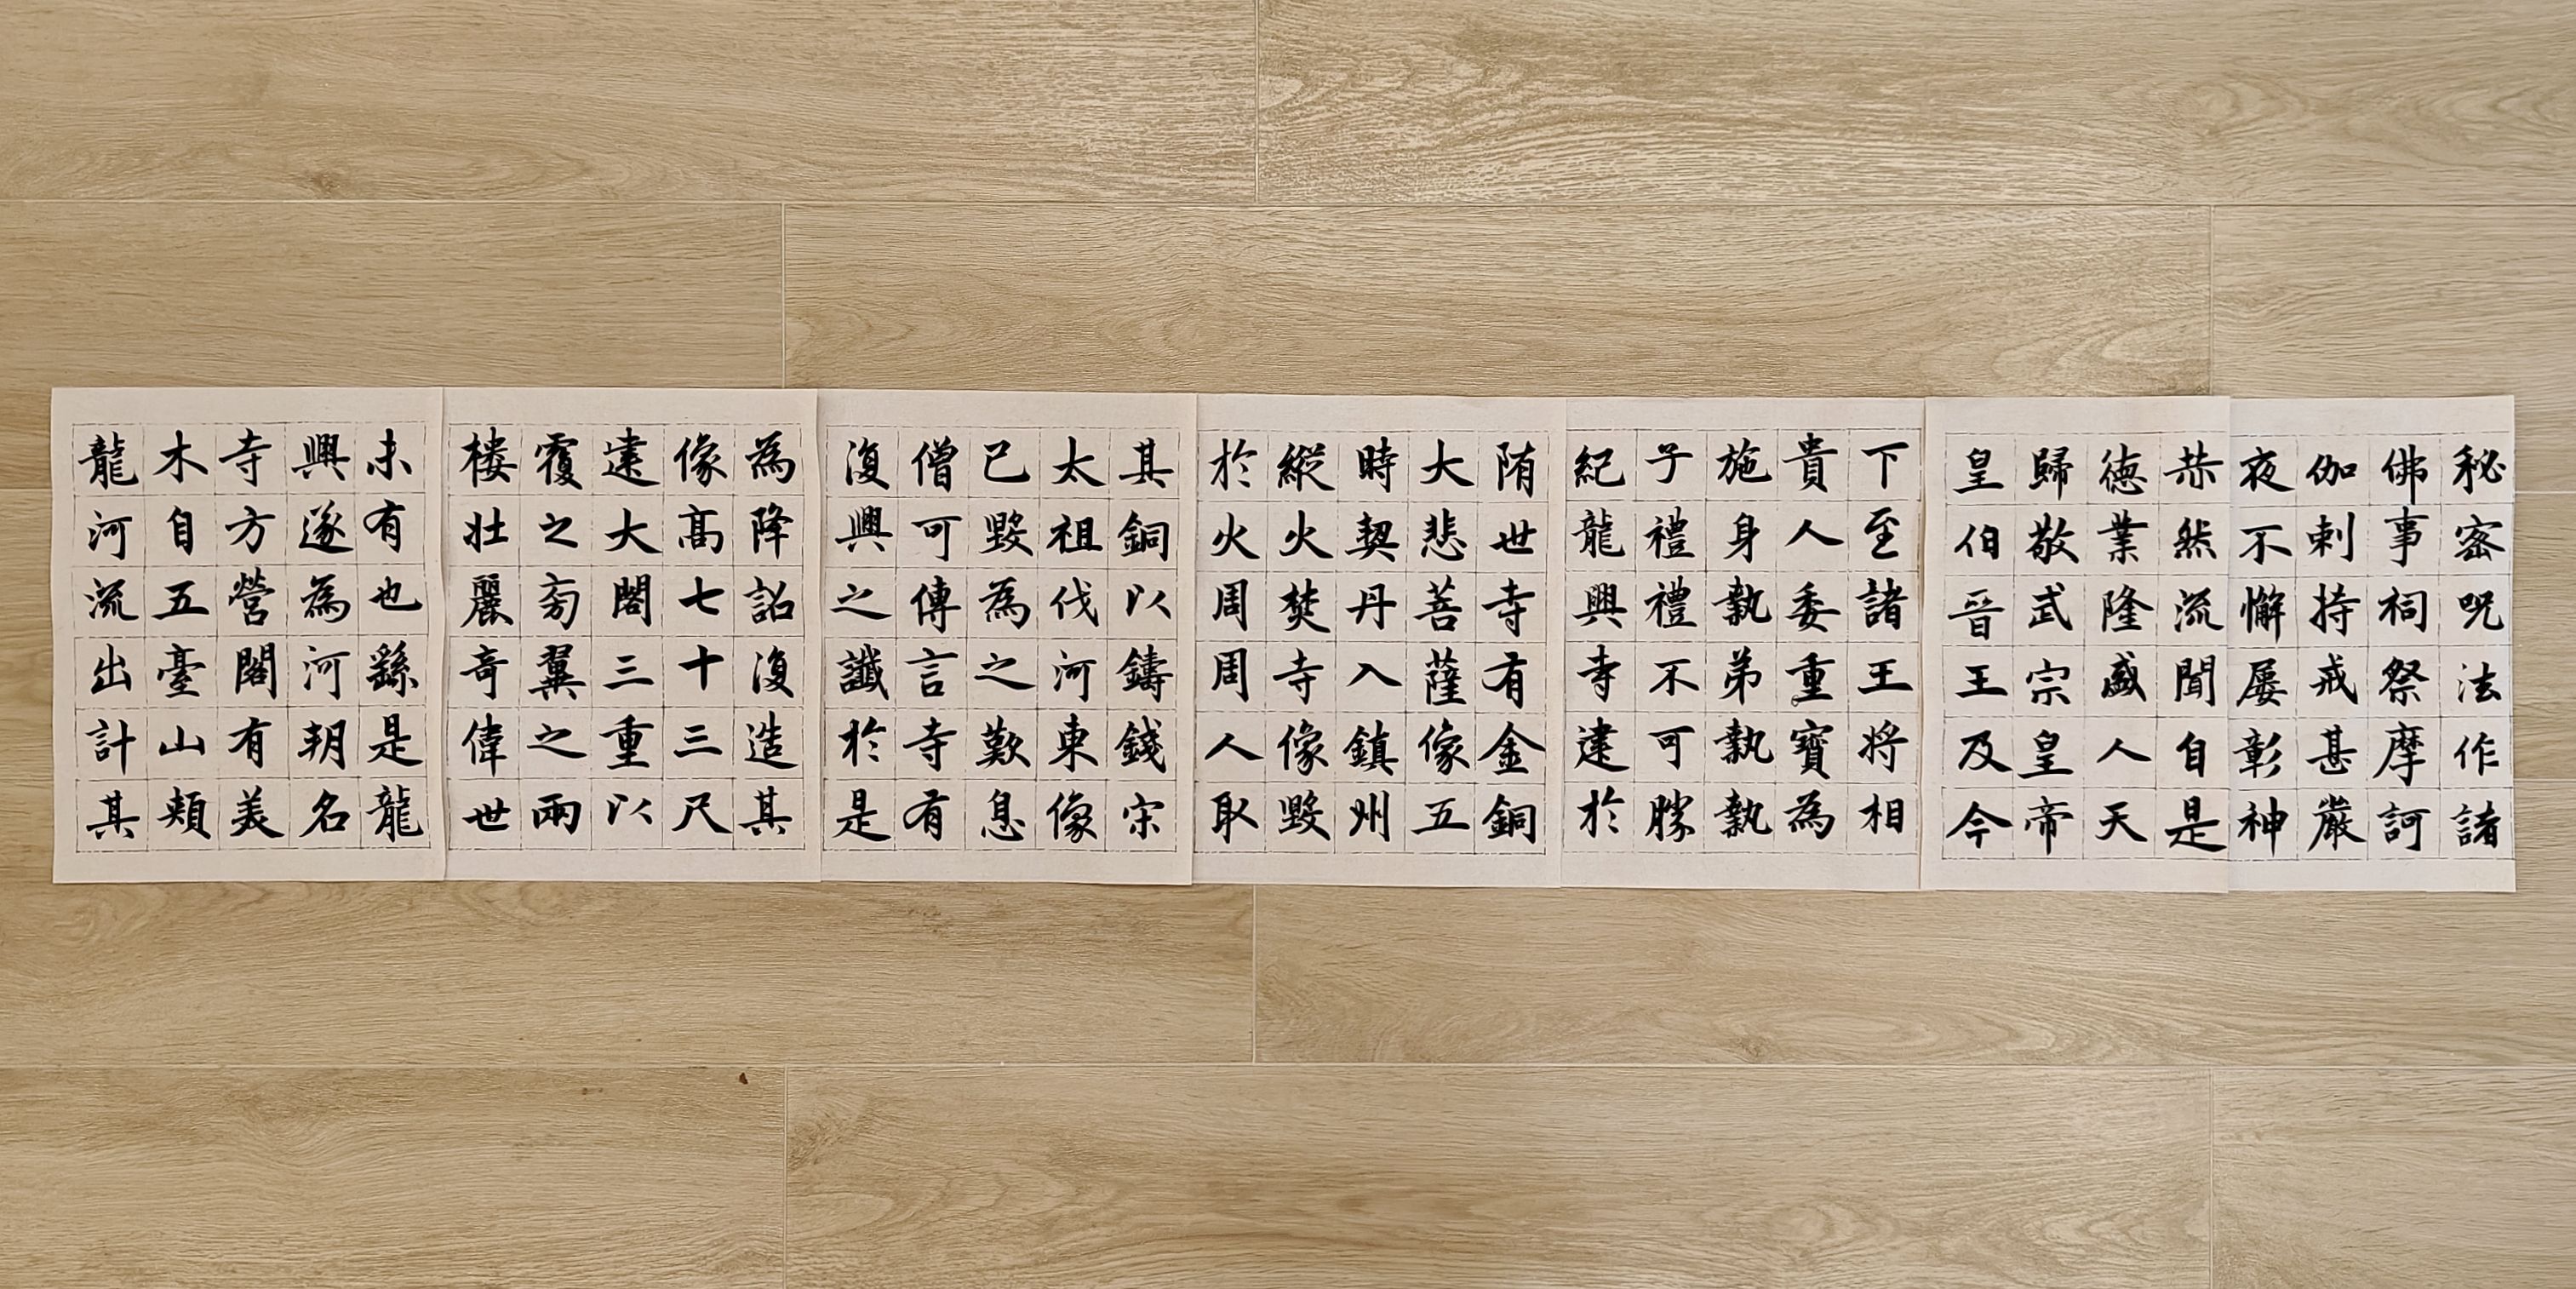 秘密呪法作諸
佛事祠祭摩訶
伽剌持戒甚嚴
夜不懈屢彰神
恭然流聞自是
德業隆盛人天
歸敬武宗皇帝
皇伯晉王及今
下至諸王將相
貴人委重寶為
施身執弟執執
子禮禮不可勝
紀龍興寺建於
隋世寺有金銅
大悲菩薩像五
時契丹入鎮州
縱火焚寺像毀
於火周周人取
其銅以鑄錢宋
太祖伐河東像
已毀為之歎息
僧可傳言寺有
復興之讖於是
為降詔復造其
像高七十三尺
建大閣三重以
覆之旁翼之兩
樓壯麗奇偉世
未有也繇是龍
興遂為河朔名
寺方營閣有美
木自五臺山頰
龍河流出計其